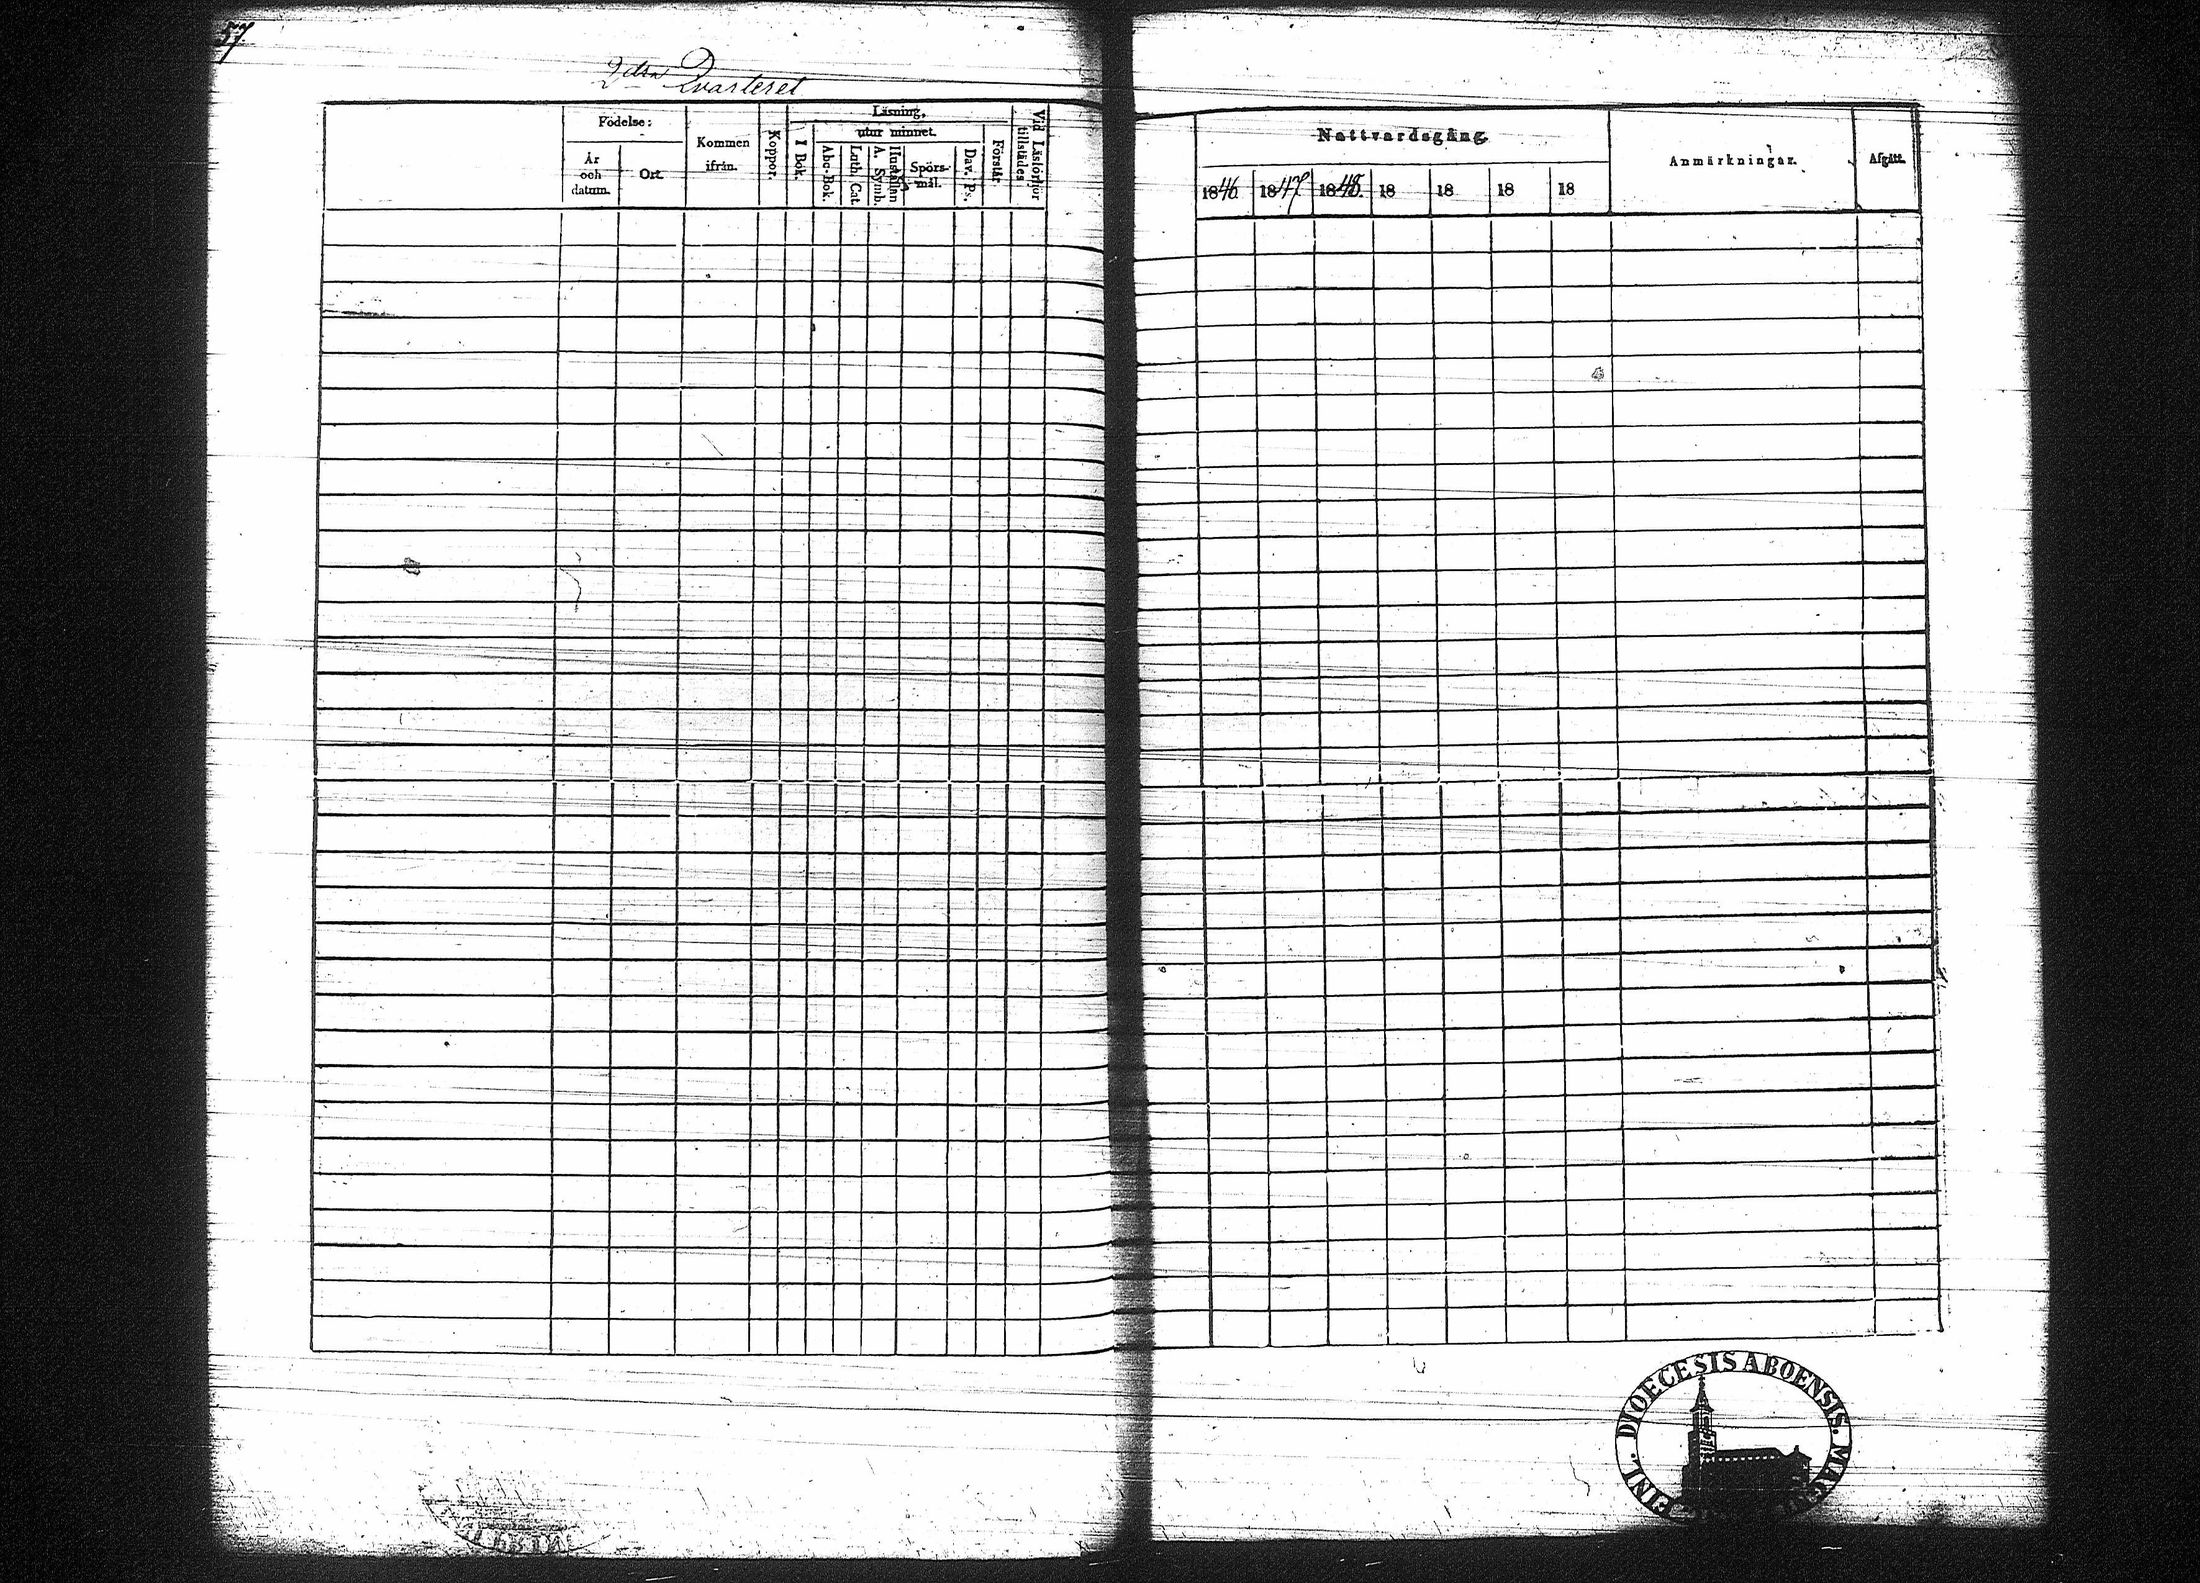 57
2dra Qvarteret
Födelse:
År
och
datum.
Ort.
Kommen
ifrån.
Koppor.
Läsning,
I Bok.
utur minnet.
Abc-Bok.
Luth. Cat.
Hustaflan
A. Symb.
Spörs-
mål.
Dav. Ps.
Förstår.
Vid Läsförhör
tillstädes
Nattvardsgång
1846 1847 1848. 18 18 18 18
Anmärkningar.
Afgått.
DIOECESIS ABOENSIS.